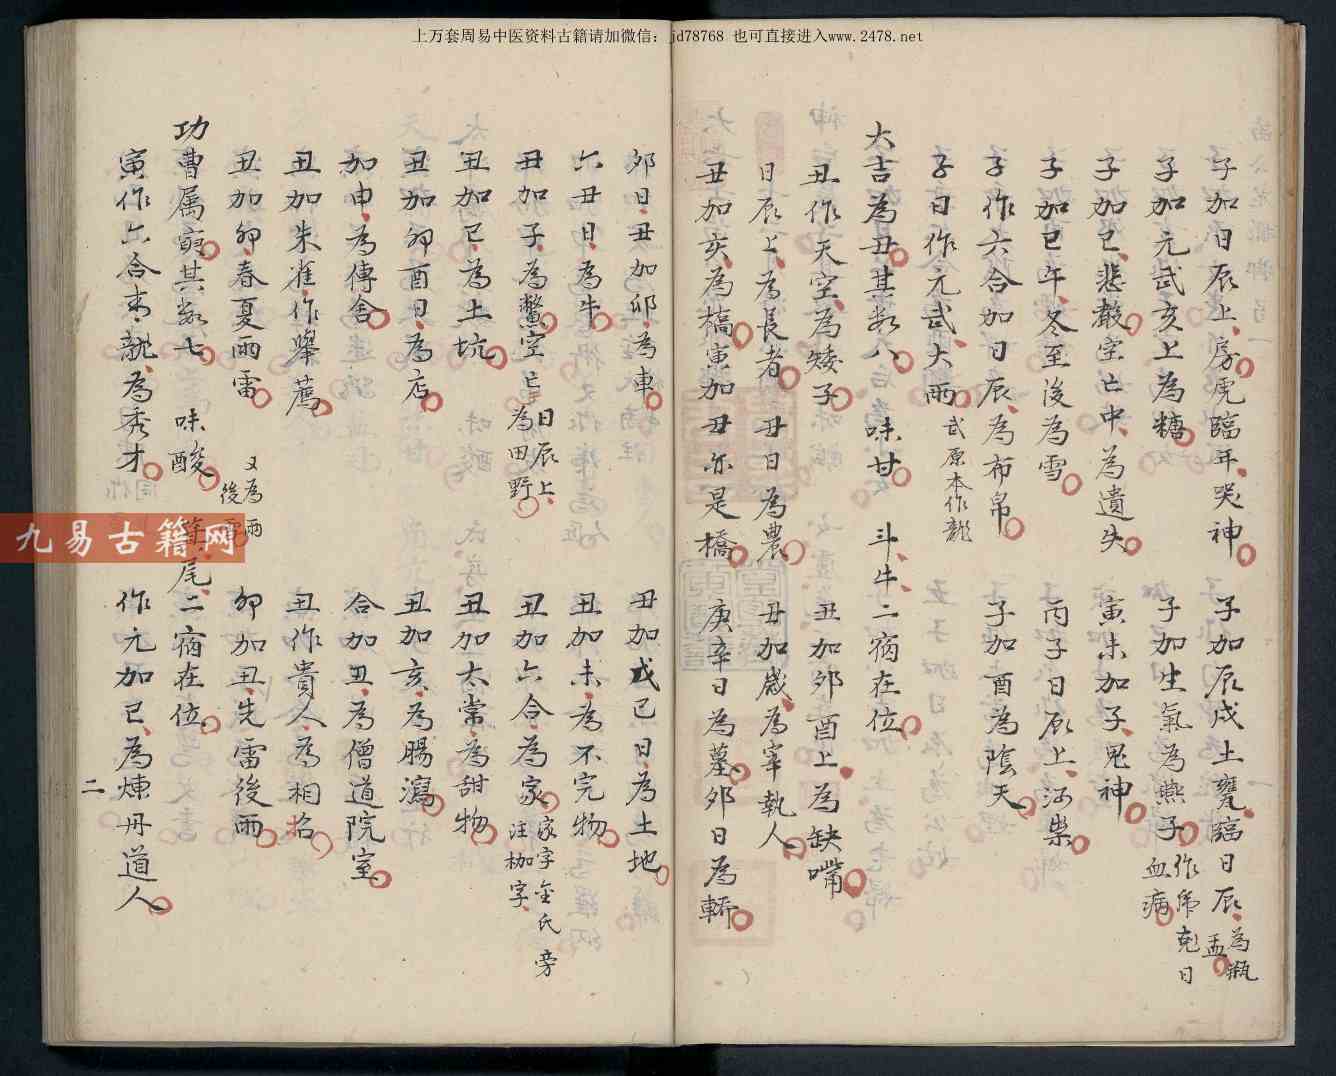 上万套周易中医资料古籍请加微信：jd78768 也可直接进入www.2478.net
子加日辰上房虎臨年哭神 子加辰戌土甕臨日辰為瓶盂
子加元武亥上為糖 子加生氣為燕子作虎尅日血病
子加巳悲嚴室亡中為遺失 寅未加子鬼神
子加巳午冬至後為雪 丙子日辰上
子作六合加日辰為布帛 子加酉為陰天
子日作元武大雨武原本作龍
大吉為丑其数八 味甘 斗牛二宿在位
丑作天空為矮子 丑加卯酉上為缺嘴
日辰上為長者 丑日為農 丑加歲為宰執人
丑加亥為橋寅加丑亦是橋 庚辛日為墓卯日為轎
卯日丑加卯為車 丑加戊己日為土地
六丑日為牛 丑加未為不完物
丑加子為鱉空亡日辰上為田野 丑加六合為家家字金氏旁注枷字
丑加巳為土坑 丑加太常為甜物
丑加卯酉日為店 丑加亥為腸瀉
加申為傳舍 合加丑為僧道院室
丑加朱雀作舉薦 丑作貴人為相
丑加卯春夏雨雷又為雨後 卯加丑先雷後雨
功曹属寅其数七 味酸 箕尾二宿在位
寅作六合青龍為秀才 作元加巳為煉丹道人
二
九易古籍网